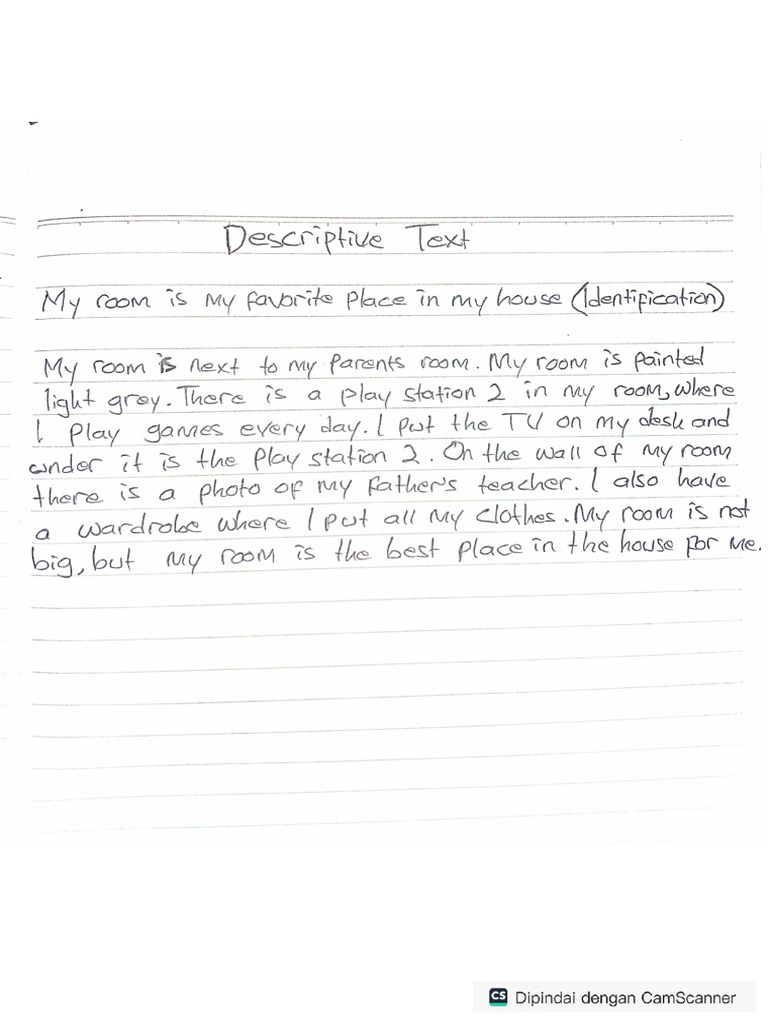 Descriptive Text
My room is my favorite place in my house (Identification)
My room is next to my parents room. My room is painted
light grey. There is a play station 2 in my room, where
I play games every day. I put the TV on my desk and
under it is the play station 2. On the wall of my room
there is a photo of my father's teacher. I also have
a wardrobe where I put all my clothes. My room is not
big, but my room is the best place in the house for me.
CS Dipindai dengan CamScanner